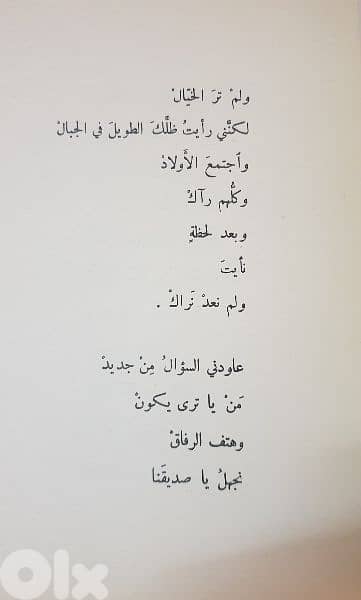 ولمْ ترَ الخيّالْ
لكنَّني رأيتُ ظلَّكَ الطويلَ في الجبالْ
وٱجتمعَ الأَولادْ
وكلُّهم رآكْ
وبعد لحظةٍ
نأيتَ
ولم نعدْ نَراكْ .
عاودني السؤالُ مِنْ جديدْ
مَنْ يا ترى يكونْ
وهتف الرفاقْ
نجهلُ يا صديقَنا
OLX